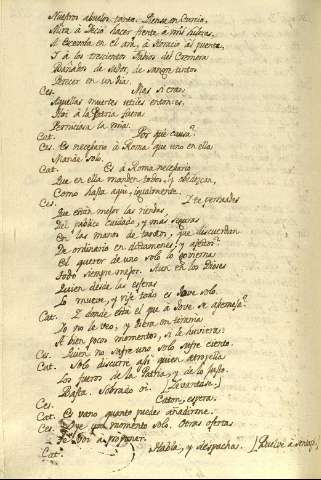 Nuestros abuelos tanto. Piensa en Curcio,
Mira à Decio hacer frente à mil lides,
A Escevola en el ara, à Horacio al puente,
I à los trescientos Fabios del Cremera
Bañados de sudor, de sangre tintos
Perecer en un dia.
Ces. Mas si eran
Aquellas muertes utiles entonces,
Hoi à la Patria fuera
Perniciosa la mia.
Cat. Por què causa?
Ces. Es necesario à Roma que uno en ella
Mande solo.
Cat. Es à Roma necesario
Que en ella manden todos, y obedezcan,
Como hasta aqui, igualmente.
Ces. I te persuades
Que estàn mejor las riendas
Del publico cuidado, y mas seguras
En las manos de tantos, que discuerdan
De ordinario en dictamenes, y afectos?
El querer de uno solo lo govierna
Todo siempre mejor. Aun en los Dioses
Quien desde las esferas
Lo mueve, y rije todo es Jove solo.
Cat. I donde està el que à Jove se asemeja?
Yo no le veo, y fuera un tirano
A bien pocos momentos, si le huviera.
Ces. Quien no sufre uno solo sufre ciento.
Cat. Solo discurre asi quien atropella
Los fueros de la Patria, y de lo justo.
Basta. Sobrado oi. [Levantase]
Ces. Caton, espera.
Cat. Es vano quanto puedes añadirme.
Ces. Oye un momento solo. Otras ofertas
Te voi à proponer.
Cat. Habla, y despacha. [Buelve à sentarse]